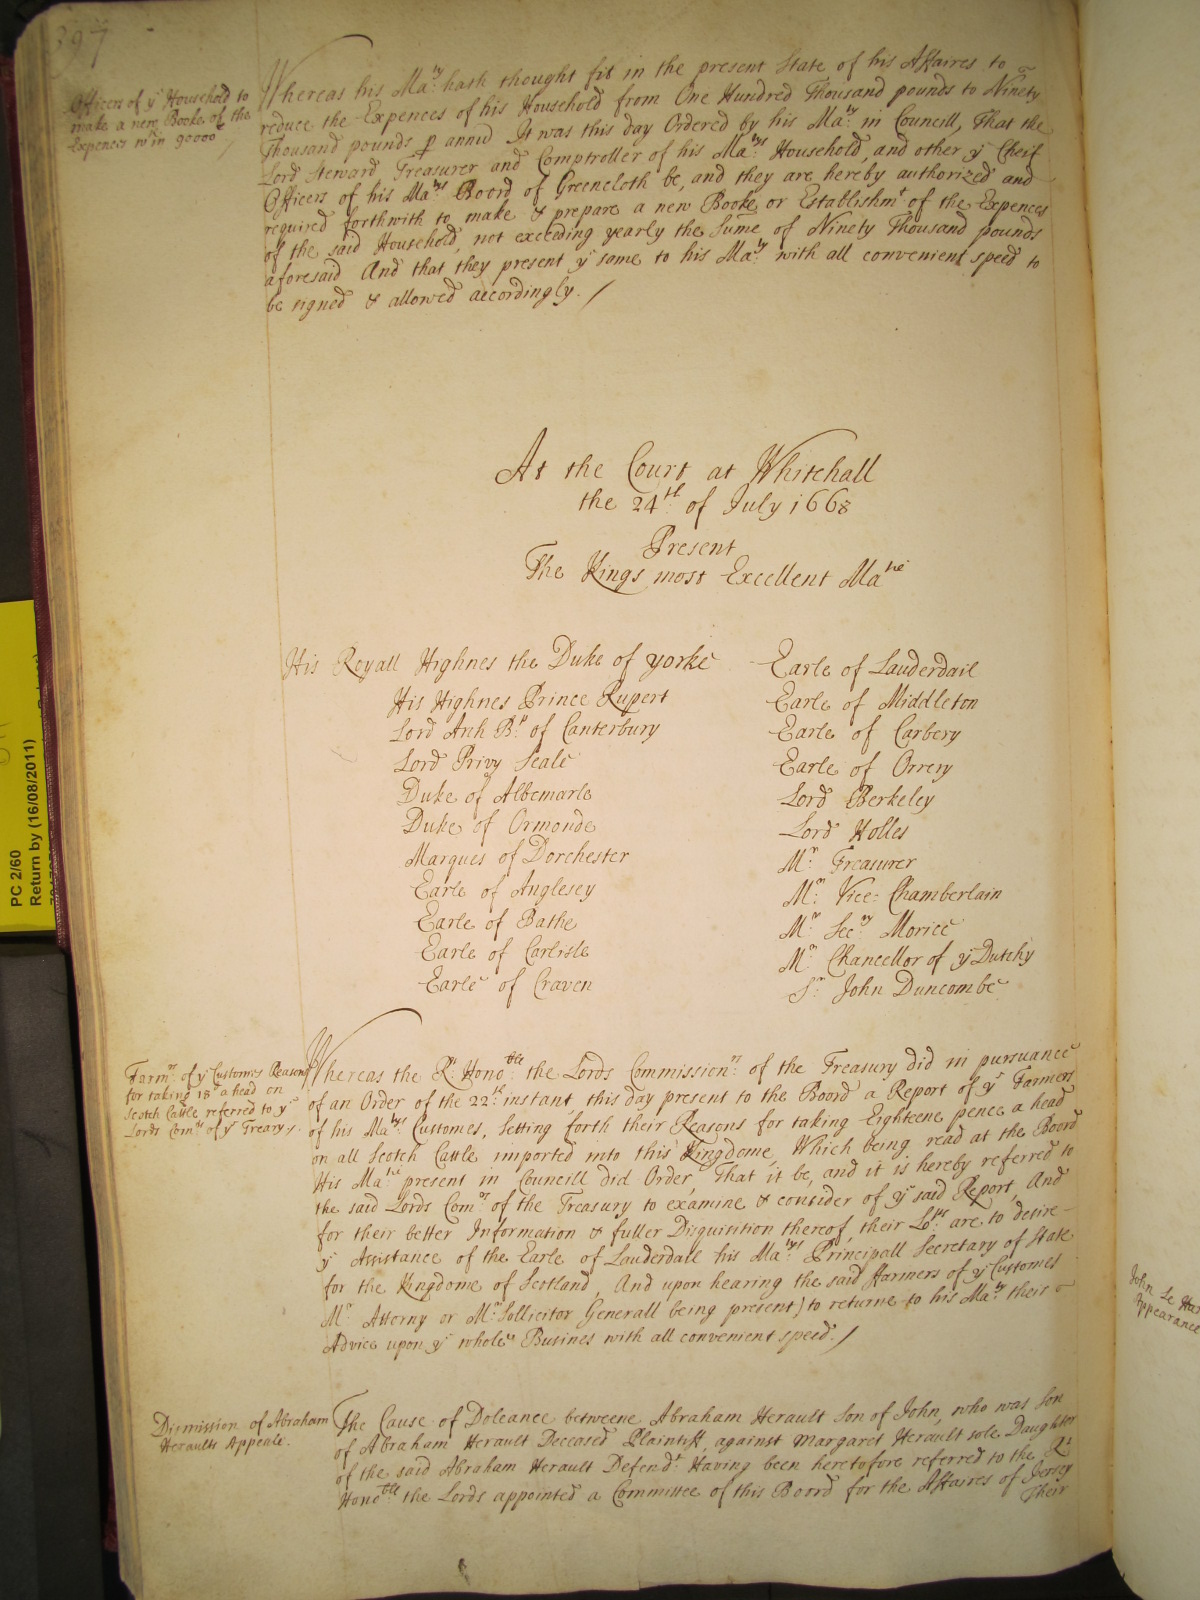 397
Officers of yͤ Household to
make a new Booke of the
Expences wᵗʰin 90000ˡ /
Whereas his Maᵗʸ hath thought fit in the present State of his Affaires to
reduce the Expences of his Household from One Hundred Thousand pounds to Ninety
Thousand pounds ꝑ annũ It was this day Ordered by his Maᵗʸ in Councill, That the
Lord Steward Treasurer and Comptroller of his Maᵗʸˢ Household, and other yͤ Cheif
Officers of his Maᵗʸˢ Boord of Greencloth be, and they are hereby authorized and
required forthwith to make & prepare a new Booke or Establishmᵗ of the Expences
of the said Household, not exceeding yearly the Sum̃e of Ninety Thousand pounds
aforesaid And that they present yͤ same to his Maᵗʸ with all convenient speed to
be signed & allowed accordingly. /
At the Court at Whitehall
the 24ᵗʰ of July 1668
Present
The Kings most Excellent Maᵗⁱᵉ
His Royall Highnes the Duke of yorke
His Highnes Prince Rupert
Lord Arch Bᵖ of Canterbury
Lord Privy Seale
Duke of Albemarle
Duke of Ormonde
Marques of Dorchester
Earle of Anglesey
Earle of Bathe
Earle of Carlisle
Earle of Craven
Earle of Lauderdail
Earle of Middleton
Earle of Carbery
Earle of Orrery
Lord Berkeley
Lord Holles
Mʳ Treasurer
Mʳ Vice= Chamberlain
Mʳ Secʳʸ Morice
Mʳ Chancellor of yͤ Dutchy
Sʳ John Duncombe
Farmʳˢ of yͤ Customes Reasons
for taking 18ᵈ a head on
Scotch Cattle referred to yͤ
Lords Comʳˢ of yͤ Treary /.
Whereas the Rᵗ Honoᵇˡᵉ the Lords Commissionʳˢ of the Treasury did in pursuance
of an Order of the 22ᵗʰ instant, this day present to the Board a Report of yͤ Farmers
of his Maᵗʸˢ Customes, Setting forth their Reasons for taking Eighteene pence a head
on all Scotch Cattle imported into this Kingdome, Which being read at the Board
His Maᵗⁱᵉ present in Councill did Order, That it be, and it is hereby referred to
the said Lords Comʳˢ of the Treasury to examine & consider of yͤ said Report, And
for their better Information & fuller Disquisition thereof, their Loᵖˢ are to desire
yͤ Assistance of the Earle of Lauderdail his Maᵗʸˢ Principall Secretary of State
for the Kingdome of Scotland, And upon hearing the said Farmers of yͤ Customes
Mʳ Attorny or Mʳ Sollicitor Generall being present) to returne to his Maᵗʸ their
Advice upon yͤ whole Busines with all convenient speed. /
Dismission of Abraham
Heraults Appeale.
The Cause of Doleance betweene Abraham Herault Son of John, who was Son
of Abraham Herault Deceased Plaintiff, against Margaret Herault sole Daughter
of the said Abraham Herault Defendᵗ Having been heretofore referred to the Rᵗ
Honoᵇˡᵉ the Lords appointed a Committee of this Board for the Affaires of Jersey
Their
PC 2/60
Return by (16/08/2011)
John Le
Appearance